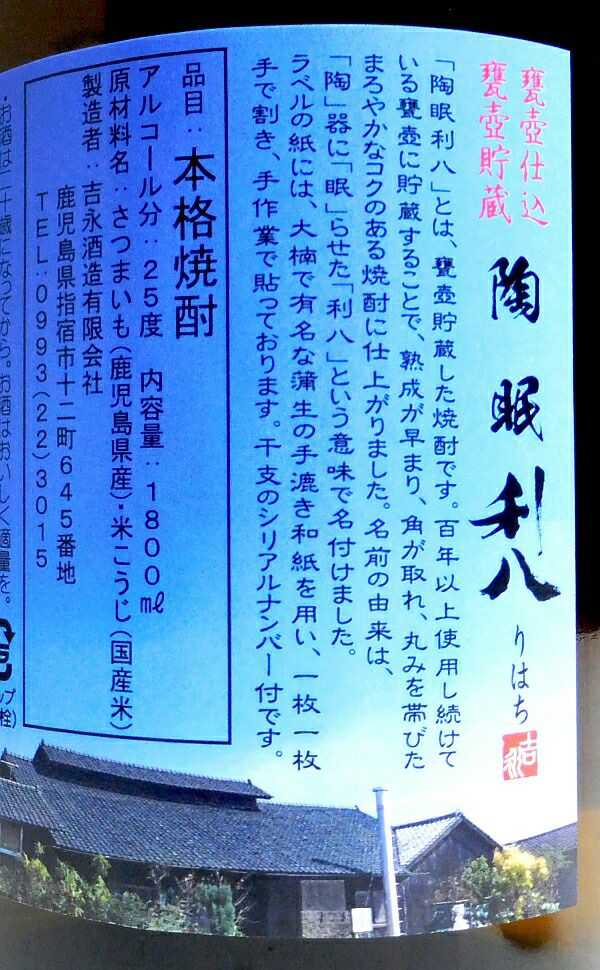 甕壺仕込
甕壺貯蔵
陶眠利八
りはち
吉永
「陶眠利八」とは、甕壺貯蔵した焼酎です。百年以上使用し続けて
いる甕壺に貯蔵することで、熟成が早まり、角が取れ、丸みを帯びた
まろやかなコクのある焼酎に仕上がりました。名前の由来は、
「陶」器に「眠」らせた「利八」という意味で名付けました。
ラベルの紙には、大楠で有名な蒲生の手漉き和紙を用い、一枚一枚
手で割き、手作業で貼っております。干支のシリアルナンバー付です。
品目：本格焼酎
アルコール分：25度 内容量：1800㎖
原材料名：さつまいも（鹿児島県産）・米こうじ（国産米）
製造者：吉永酒造有限会社
鹿児島県指宿市十二町645番地
TEL：0993（22）3015
・お酒は二十歳になってから。お酒はおいしく適量を。